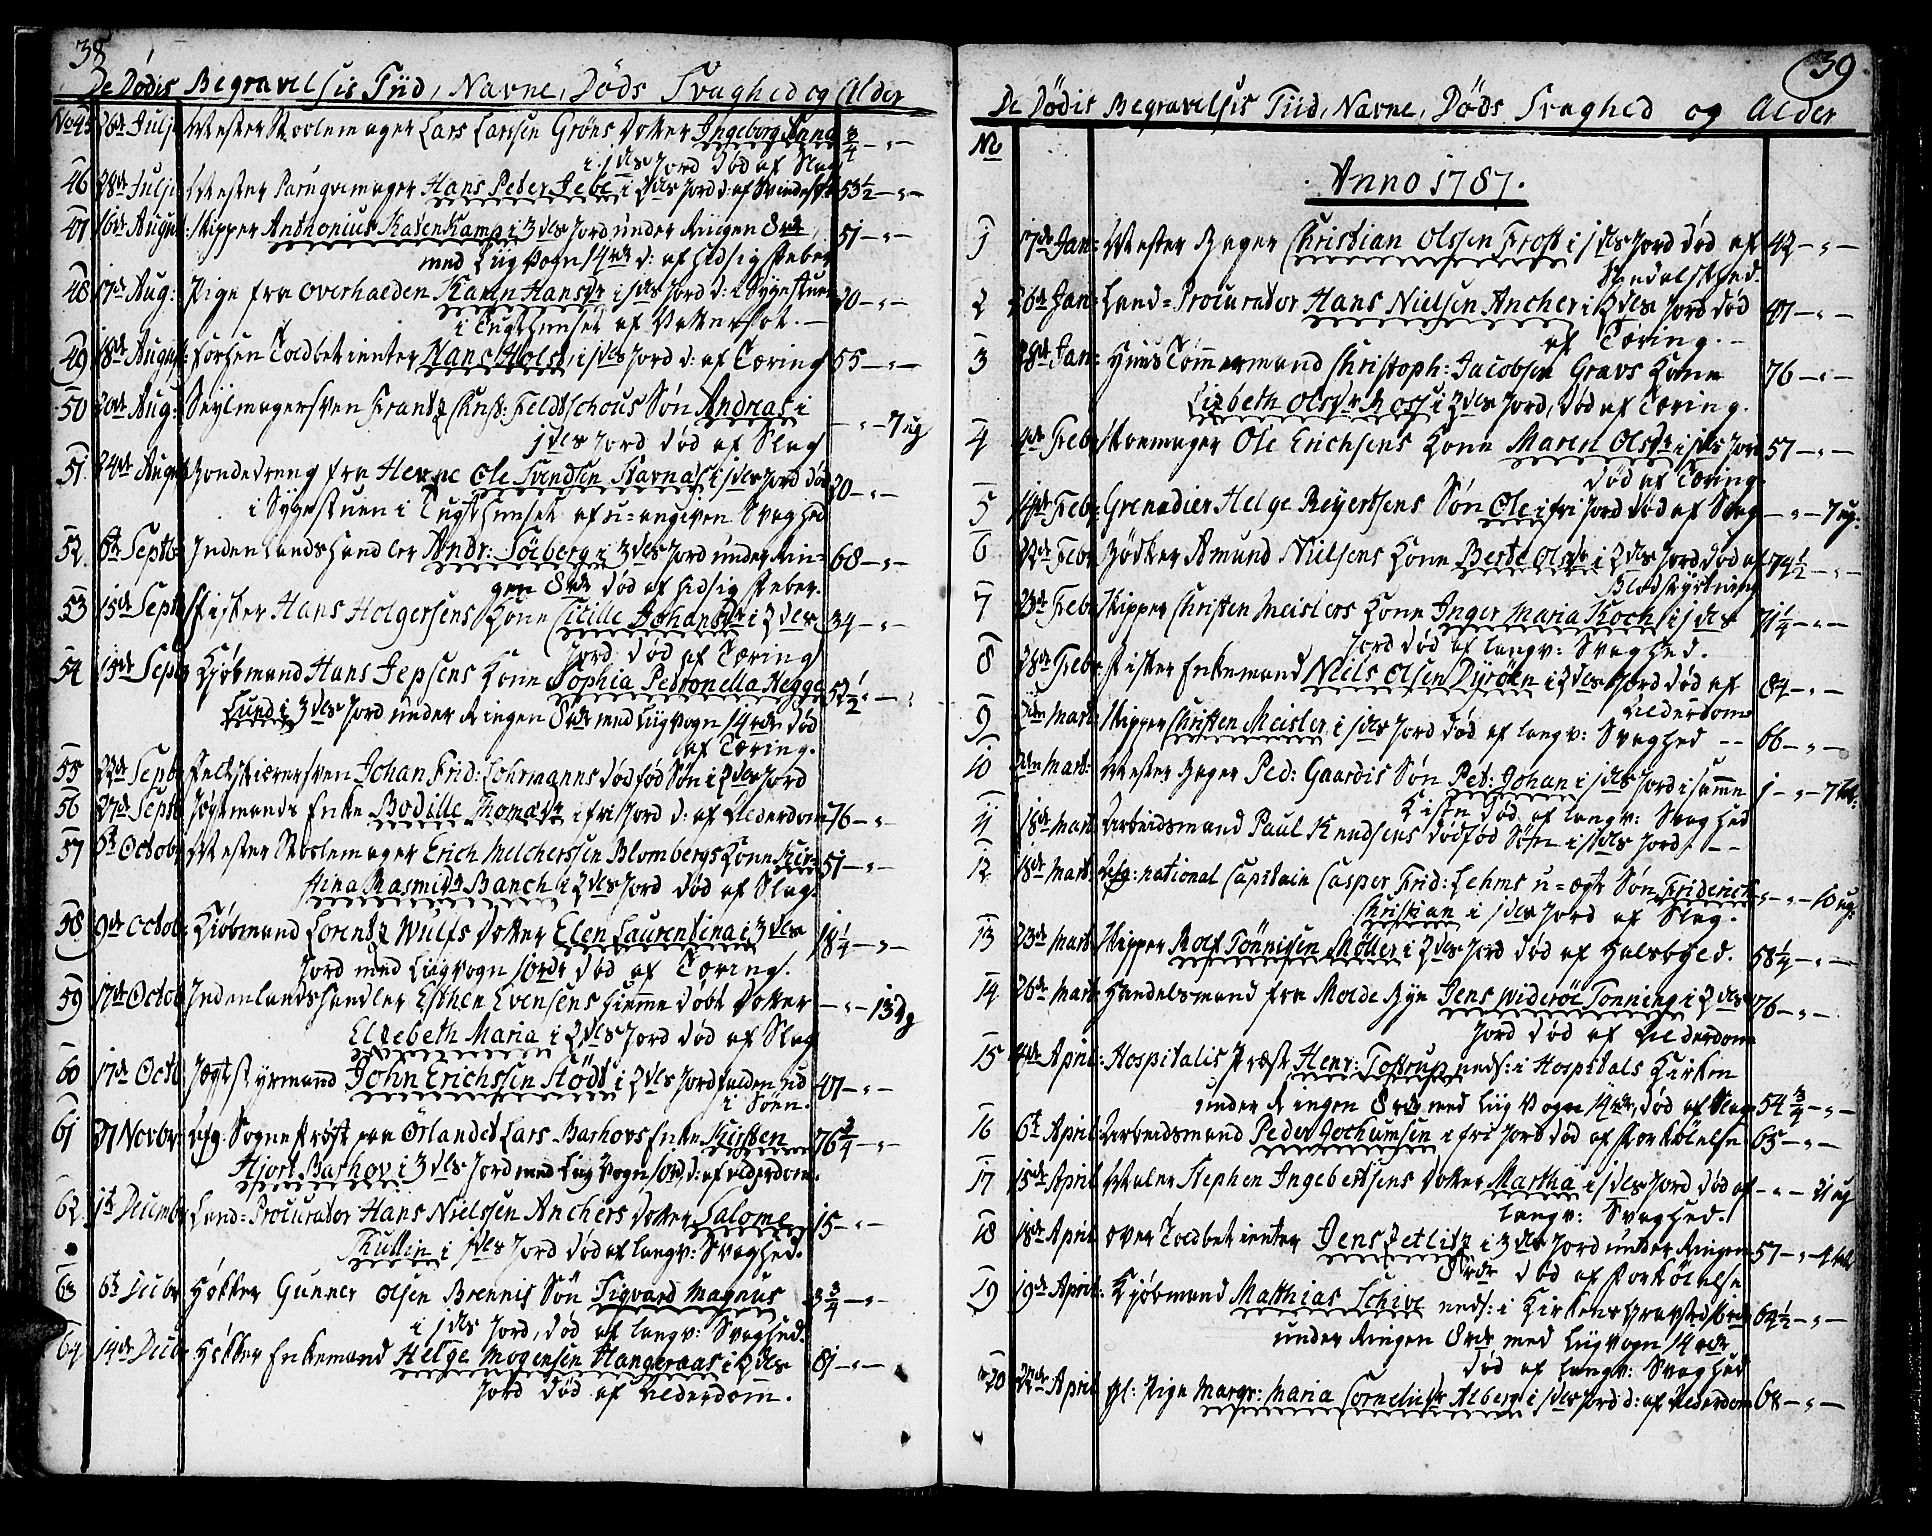 38
De Dødis Begravelsis Tiid, Navne, Døds Svaghed og Alder
No 45 26de Julj Mester Skoemager Lars Larsen Gröns Dotter Ingeborg Anna 3/4 - " -
i 1ste Jord død af Slag
46 28de Julj Mester Paruqvemager Hans Peter Jebe i 2des Jord d: af 53 1/2 - " -
47 16de August: Skipper Anthonius KatenKamp i 3des Jord under Ringen 8rdr, 51 - " -
med Liigvogn 14rdr d: af hidsig Feber
48 17de Aug: Pige fra Overhalden Karen Hansdr i 1ste Jord d: i Sygestuen 30 - " -
i Tugthuuset af Vattersot.
49 18de August: forhen Toldbetienter Hans Holst, i 1ste Jord d: af Tæring 55 - " -
50 20de Aug: Seylmagersven Frantz Christ: Feldtschous Søn Andreas i - " - 7 ug
1ste Jord død af Slag
51 24de August Bondedreng fra Herne Ole Svendsen Stavnas i 1ste Jord død 20 - " -
i Sygestuen i Tugthuuset af u-angiven Svaghed
52. 6te Septb: Indenlandshandler Andr: Söiberg i 3des Jord under Rin= 68 - " -
gen 8rdr død af hidsig Feber.
53 15de Septb Fisker Hans Holgersens Kone Cicille Johansdr i 2des 34 - " -
Jord død af Tæring
54 15de Septb Kjöbmand Hans Jepsens Kone Sophia Petronella Hegge 52 1/2 - " -
Lund i 3des Jord under Ringen 8rdr med Liigvogn 14rdr død
af Tæring.
55 22de Septb: Feldskierersven Johan Frid: Lohrmanns dødfød Søn i 2des Jord
56 27de Septb Jegtmands Enke Bodille Thomasdr i fri Jord d: af Alderdom 76 - "
57 5te Octobr Mester Skoemager Erich Melcherssen Blombergs Kone Kir= 51 - " -
stina Rasmusdr Banch i 2des Jord død af Slag.
58 9de Octob: Kjöbmand Lorentz Wulfs Dotter Elen Laurentina i 3des 18 1/4 - " -
Jord med Liigvogn 10rdr død af Tæring.
59 17de Octob Indenlandshandler Esthen Evensens hiemmedøbt Dotter - " - 13 dg
Elzebeth Maria i 2des Jord død af Slag
60 17de Octb Jægt Styrmand John Erichssen Stödt i 2des Jord falden ud 47 - " -
i Söen.
61 27 Novbr afg: Sognepræst paa Örlandet Lars Barhovs Enke Kirsten 76 3/4 - " -
Hjort Barhov i 3des Jord med Liig Vogn 10rd d: af Alderdom.
62 1te Decembr Land=Procurator Hans Nielssen Anchers Dotter Salome 15 - " -
Kullin i 1ste Jord død af langv: Svaghed.
63 6te Decbr Høkker Gunner Olsen Brennis Søn Sigvard Magnus 3 3/4 - " -
i 1ste Jord, død af langv: Svaghed.
64 14de Decbr Høkker Enkemand Helge Mogensen Hangeraas i 2des 81 - " -
Jord død af Alderdom.
39
De Dødis Begravelsis Tiid, Navne, Døds Svaghed og Alder
No
Anno 1787.
1 17de Jan: Mester Bager Christian Olssen Frost i 1ste Jord død af 42 - " -
Spedalskhed.
2 26de Jan: Land=Procurator Hans Nielsen Ancher i 2des Jord død 47 - " -
af Tæring. -
3 28de Jan: Huus Tömmermand Christoph: Jacobsen Gravs Kone 76 - " -
Lizbeth Olsdr Ross i 2des Jord, død af Tæring.
4 4de Febr Skoemager Ole Erichsens Kone Maren Olsdr i 1ste Jord 57 - " -
død af Tæring.
5 14de Febr: Grenadier Helge Reyertsens Søn Ole i fri Jord død af Slag - " - 7 ug:
6 22de Febr Bødker Amund Nielsens Kone Berte Olsdr i 2des Jord død af 74 1/2 - " -
Blodstyrtning
7 23de Febr Skipper Christen Meislers Kone Inger Maria Koch i 1ste 71 1/4 - " -
Jord død af langv: Svaghed.
8 28de Febr: Fisker Enkemand Niels Olsen Dyröen i 2des Jord død af 84 - " -
Alderdom
9 Mart: Skipper Christen Meisler i 1ste Jord død af langv: Svaghed - - 66 - " -
10 Mart: Mester Bager Ped: Gaardis Søn Pet: Johan i 1ste Jord i samme 1 - " - 7
Kiste død af langv: Svaghed
11 18de Mart: Arbeidsmand Paul Knudsens dødfød Søn i 1ste Jord. - -
12 18de Mart: afg: national Capitain Casper Frid: Lehms u=ægte Søn Friderich - " - 10 ug:
Christian i 1ste Jord af Slag.
13 23de Mart: Skipper Rolf Tönnisen Möller i 2des Jord død af Halsbyld. 58 1/4 - " -
14 26de Mart: Handelsmand fra Molde Bye Jens Wideröe Tonning i 2des 76 - " -
Jord død af Alderdom
15 4de April: Hospitalis Præst Henr: Tostrup neds: i Hospitals Kirken
under Ringen 8rdr med Liig Vogn 14rdr, død af Slag 54 3/4 - " -
16 6te April: Arbeidsmand Peder Jochumsen i fri Jord død af Forkölelse 65 - " -
17 15de April Maler Stephen Ingebertsens Dotter Martha i 1ste Jord død af - " - 21 ug
langv: Svaghed.
18 18de April over Toldbetienter Jens Jetlitz i 3des Jord under Ringen 57 - " - 4
8rdr død af Forkölelse
19 19de April: Kjöbmand Matthias Schive neds: i Kirkens Gravsted 64 1/2 - " -
under Ringen 8rdr med Liigvogn 14rdr
død af langv: Svaghed
20 22de April gl: Pige Margr: Maria Cornelisdr Alberg i 1ste Jord d: af Alderdom 68 - " -